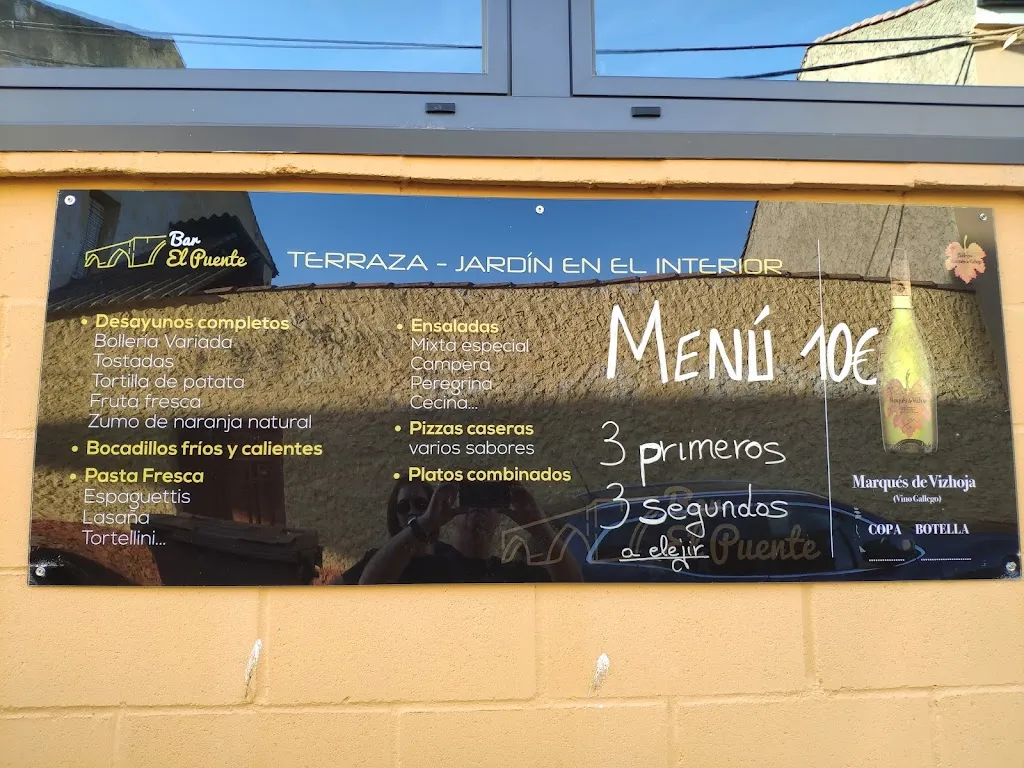 Bar
El Puente
TERRAZA - JARDÍN EN EL INTERIOR
• Desayunos completos
Bollería Variada
Tostadas
Tortilla de patata
Fruta fresca
Zumo de naranja natural
• Bocadillos fríos y calientes
• Pasta Fresca
Espaguettis
Lasaña
Tortellini...
• Ensaladas
Mixta especial
Campera
Peregrina
Cecina...
• Pizzas caseras
varios sabores
• Platos combinados
MENÚ 10€
3 primeros
3 segundos
a elejir
El Puente
Marqués de Vizhoja
Marqués de Vizhoja
(Vino Gallego)
COPA BOTELLA